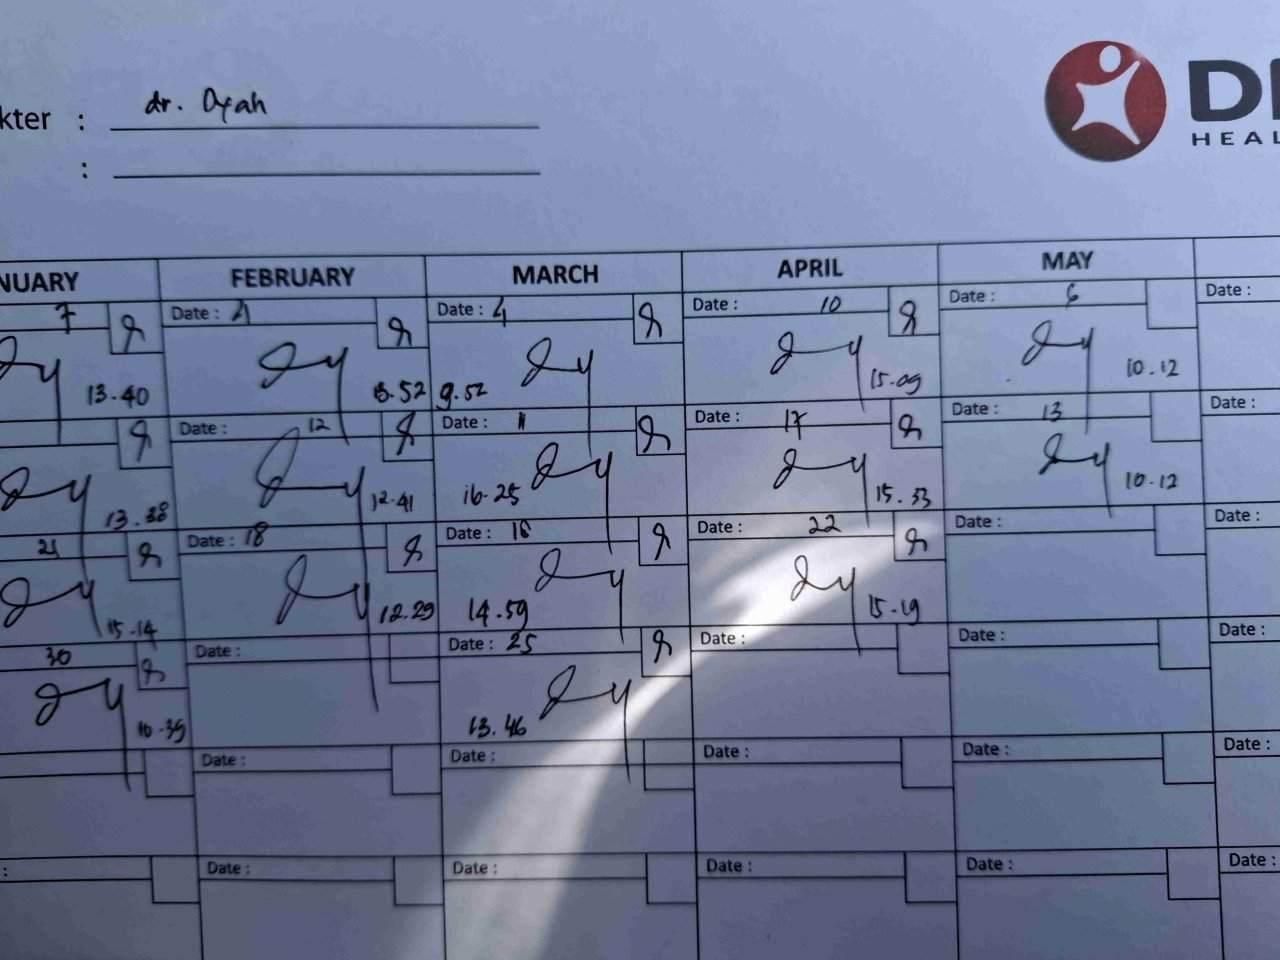 kter : dr. Oyah
:
DI
HEAL
NUARY FEBRUARY MARCH APRIL MAY
7 Date : 4 Date : 4 Date : 10 Date : 6 Date :
13.40 13.52 9.52 15.09 10.12
Date : 12 Date : 11 Date : 17 Date : 13 Date :
13.38 12.41 16.25 15.33 10.12
21 Date : 18 Date : 18 Date : 22 Date : Date :
15.14 12.29 14.59 15.19
30 Date : Date : 25 Date : Date : Date :
10.35 13.46
Date : Date : Date : Date : Date :
: Date : Date : Date : Date : Date :